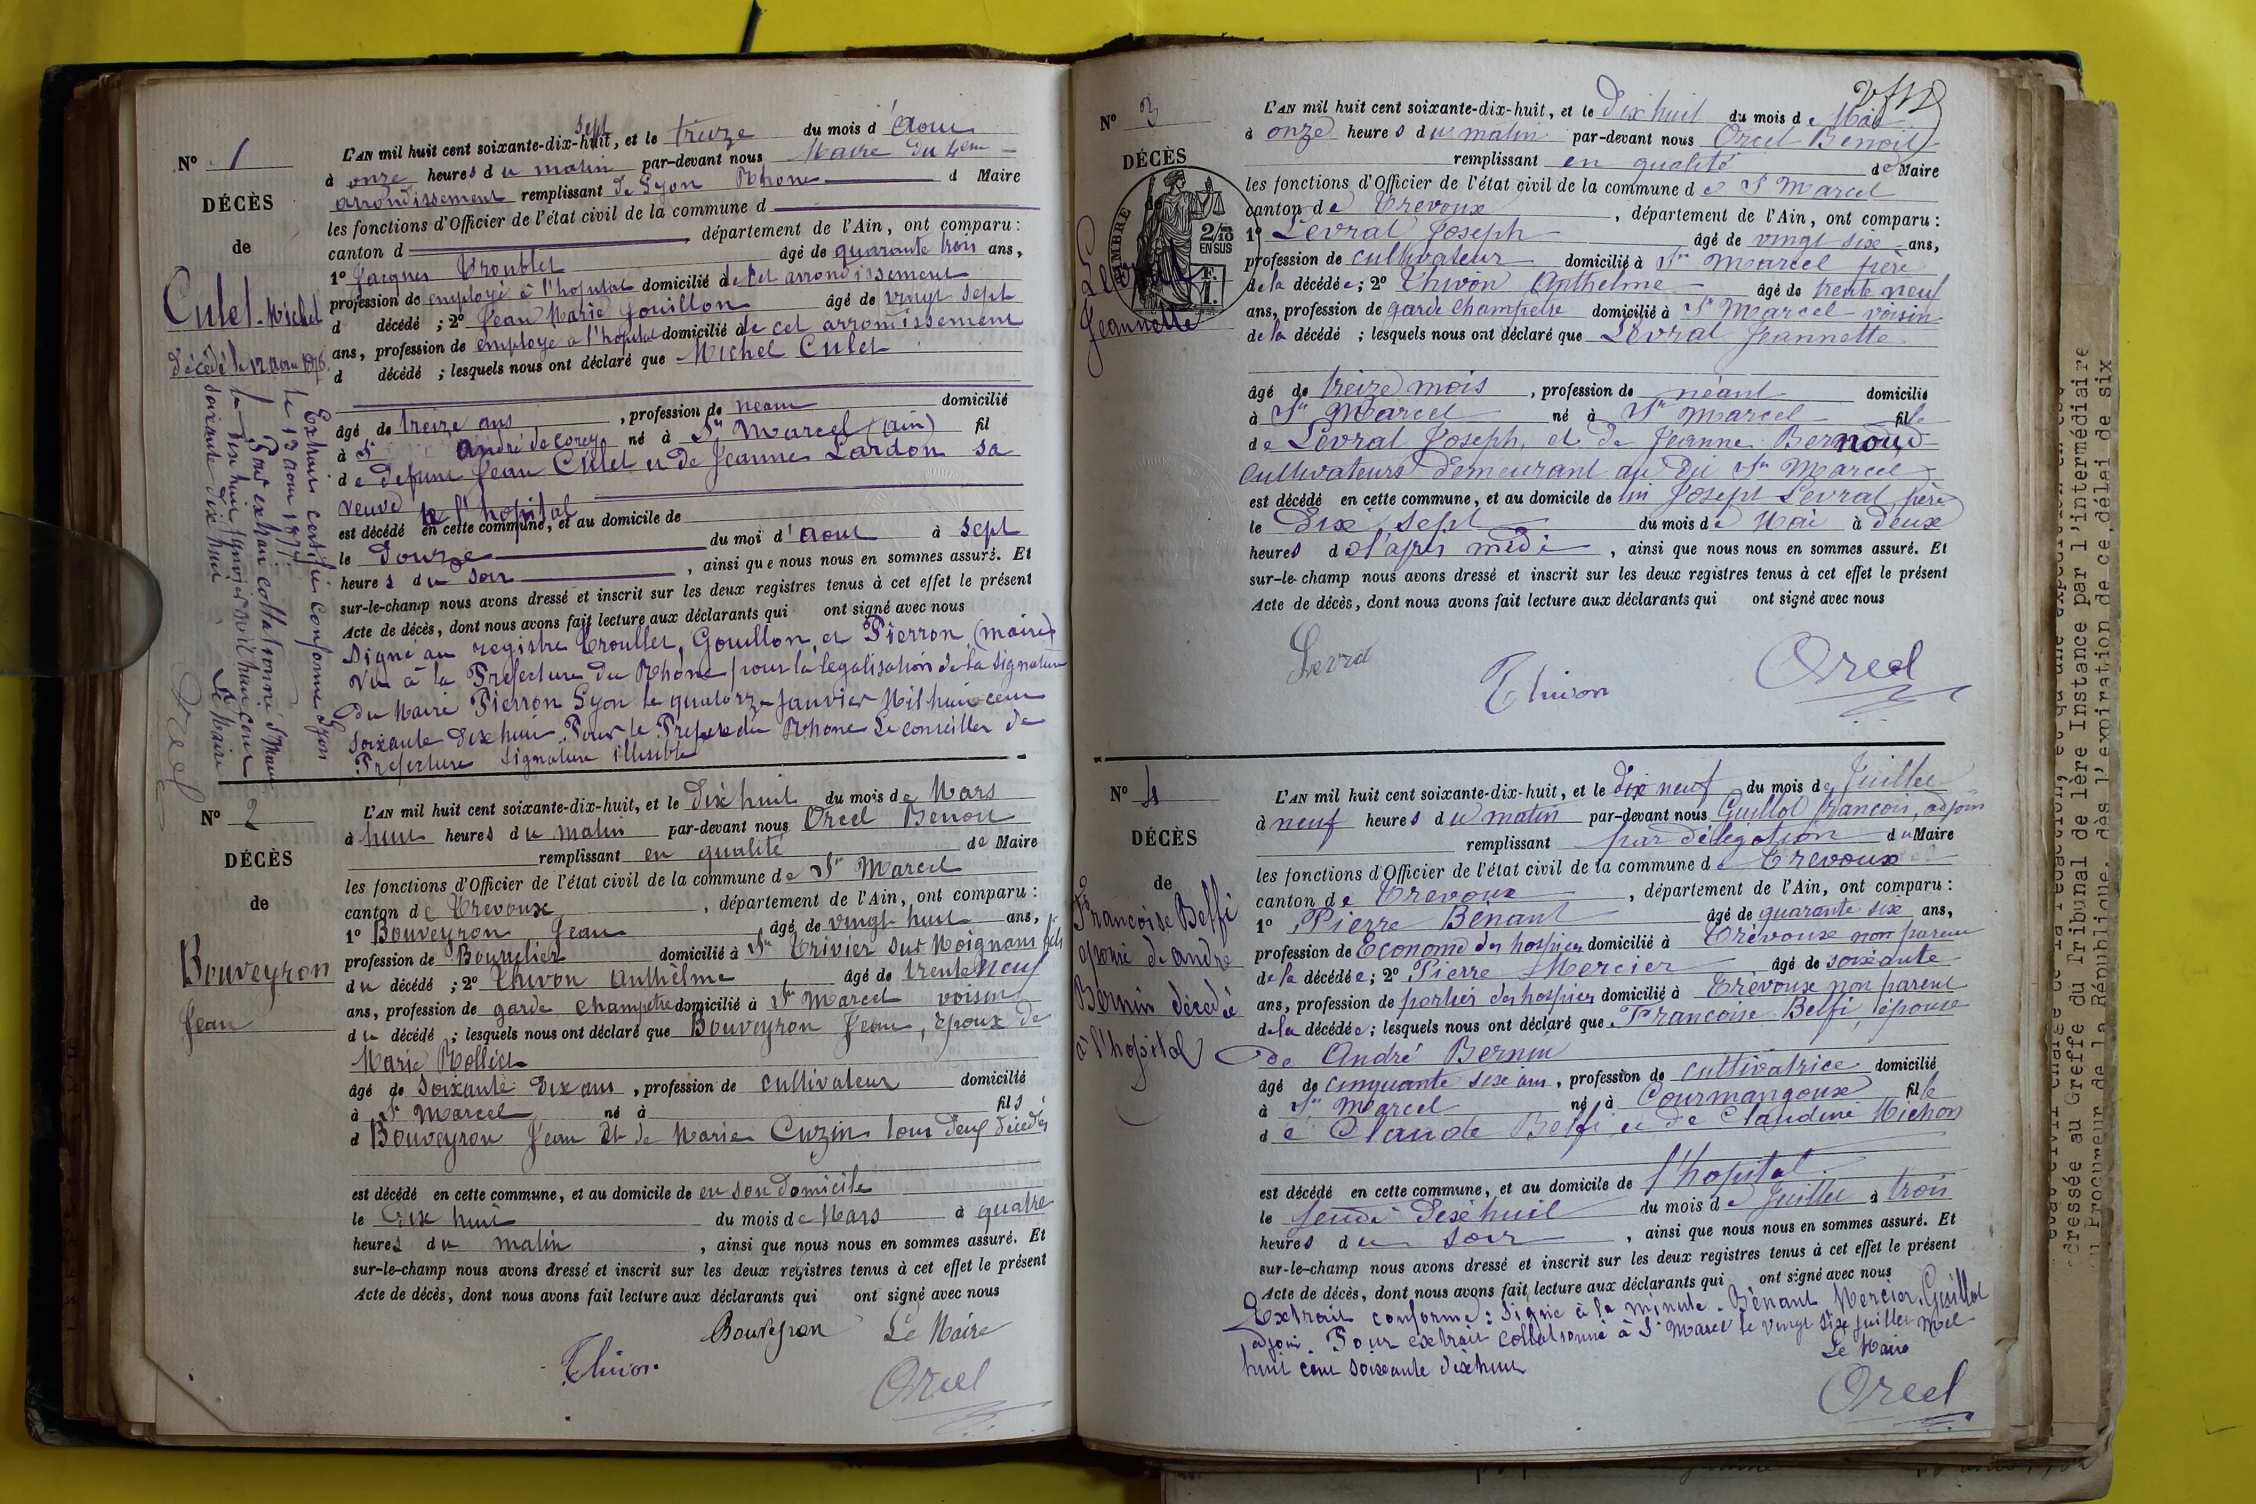 N° 1
DÉCÈS
de
Culet. Michel
décédé le 12 aout 187
Extrait certifié conforme Lyon
le 13 aout 1877.
Pour extrait collationné St Marcel
soixante dix huit
Le Maire
Orcel
L'AN mil huit cent soixante-dix-huit sept, et le treize du mois d'Aout
à onze heures du matin par-devant nous Maire du 4eme
arrondissement remplissant de Lyon Rhone d Maire
les fonctions d'Officier de l'état civil de la commune d
canton d département de l'Ain, ont comparu :
1° Jacques Troullet âgé de quarante trois ans,
profession de employé à l'hopital domicilié de cet arrondissement
d décédé ; 2° Jean Marie Gouillon âgé de vingt sept
ans, profession de employé a l'hopital domicilié à de cet arrondissement
d décédé ; lesquels nous ont déclaré que Michel Culet
âgé de treize ans , profession de neant domicilié
à St André de Corcy né à St Marcel (ain) fil
de defunt Jean Culet et de Jeanne Lardon sa
veuve
est décédé en cette commune, et au domicile de l'hopital
le Douze du moi d'aout à sept
heures du soir , ainsi que nous nous en sommes assuré. Et
sur-le-champ nous avons dressé et inscrit sur les deux registres tenus à cet effet le présent
Acte de décès, dont nous avons fait lecture aux déclarants qui ont signé avec nous
Signé au registre Troullet, Gouillon, et Pierron (maire)
Vu à la Prefecture du Rhone pour la legalisation de la signature
du Maire Pierron Lyon le quatorze Janvier Mil huit cent
soixante dix huit Pour le Prefet du Rhone Le conseiller de
Prefecture signature illisible
N° 2
DÉCÈS
de
Bouveyron
Jean
L'AN mil huit cent soixante-dix-huit, et le dix huit du mois de Mars
à huit heures du matin par-devant nous Orcel Benoit
remplissant en qualité de Maire
les fonctions d'Officier de l'état civil de la commune de St Marcel
canton de Trevoux , département de l'Ain, ont comparu :
1° Bouveyron Jean âgé de vingt huit ans,
profession de Bourrelier domicilié à St Trivier sur Moignans fils
du décédé ; 2° Thivon Anthelme âgé de trente neuf
ans, profession de garde champetre domicilié à St Marcel voisin
du décédé ; lesquels nous ont déclaré que Bouveyron Jean, Epoux de
Marie Rolliet
âgé de soixante dix ans , profession de cultivateur domicilié
à St Marcel né à fils
d Bouveyron Jean Et de Marie Cuzin tous deux décédés
est décédé en cette commune, et au domicile de en son domicile
le Dix huit du mois de Mars à quatre
heures du matin , ainsi que nous nous en sommes assuré. Et
sur-le-champ nous avons dressé et inscrit sur les deux registres tenus à cet effet le présent
Acte de décès, dont nous avons fait lecture aux déclarants qui ont signé avec nous
Bouveyron Le Maire
Thivon
Orcel
N° 3
DÉCÈS
de
TIMBRE
2/10
EN SUS
Levrat
Jeannette
L'AN mil huit cent soixante-dix-huit, et le Dix huit du mois de Mai
à onze heures du matin par-devant nous Orcel Benoit
remplissant en qualité de Maire
les fonctions d'Officier de l'état civil de la commune de St Marcel
canton de Trevoux , département de l'Ain, ont comparu :
1° Levrat Joseph âgé de vingt six ans,
profession de cultivateur domicilié à St Marcel père
de la décédée ; 2° Thivon Anthelme âgé de trente neuf
ans, profession de garde champetre domicilié à St Marcel voisin
de la décédé ; lesquels nous ont déclaré que Levrat Jeannette
âgé de treize mois , profession de néant domicilié
à St Marcel né à St Marcel fille
de Levrat Joseph, et de Jeanne Bernoud
Cultivateurs demeurant au dit St Marcel
est décédé en cette commune, et au domicile de un Joseph Levrat père
le Dix sept du mois de Mai à deux
heures d l'après midi , ainsi que nous nous en sommes assuré. Et
sur-le-champ nous avons dressé et inscrit sur les deux registres tenus à cet effet le présent
Acte de décès, dont nous avons fait lecture aux déclarants qui ont signé avec nous
Levra
Thivon
Orcel
N° 4
DÉCÈS
de
Francoise Belfi
épouse de andré
Bernin décédé
à l'hopital
L'AN mil huit cent soixante-dix-huit, et le dix neuf du mois de Juillet
à neuf heures du matin par-devant nous Guillot francois, adjoin
remplissant par délégation du Maire
les fonctions d'Officier de l'état civil de la commune de Trevoux
canton de Trevoux , département de l'Ain, ont comparu :
1° Pierre Bénant âgé de quarante six ans,
profession de Econome des hospices domicilié à Trévoux non parent
de la décédée ; 2° Pierre Mercier âgé de soixante
ans, profession de portier des hospices domicilié à Trévoux non parent
de la décédée ; lesquels nous ont déclaré que Francoise Belfi, épouse
de André Bernin
âgé de cinquante six ans , profession de cultivatrice domicilié
à St Marcel né à Courmangoux fille
de Claude Belfi et de Claudine Michon
est décédé en cette commune, et au domicile de l'hopital
le Jeudi Dix huit du mois de Juillet à trois
heures du soir , ainsi que nous nous en sommes assuré. Et
sur-le-champ nous avons dressé et inscrit sur les deux registres tenus à cet effet le présent
Acte de décès, dont nous avons fait lecture aux déclarants qui ont signé avec nous
Extrait conforme : signé à la minute. Bénant Mercier. Guillot
adjoin. Pour extrait collationné à St Marcel le vingt six juillet mil
huit cent soixante dix huit Le Maire
Orcel
dressée au Greffe du Tribunal de 1ère Instance par l'intermédiaire
u Procureur de la République, dès l'expiration de ce délai de six